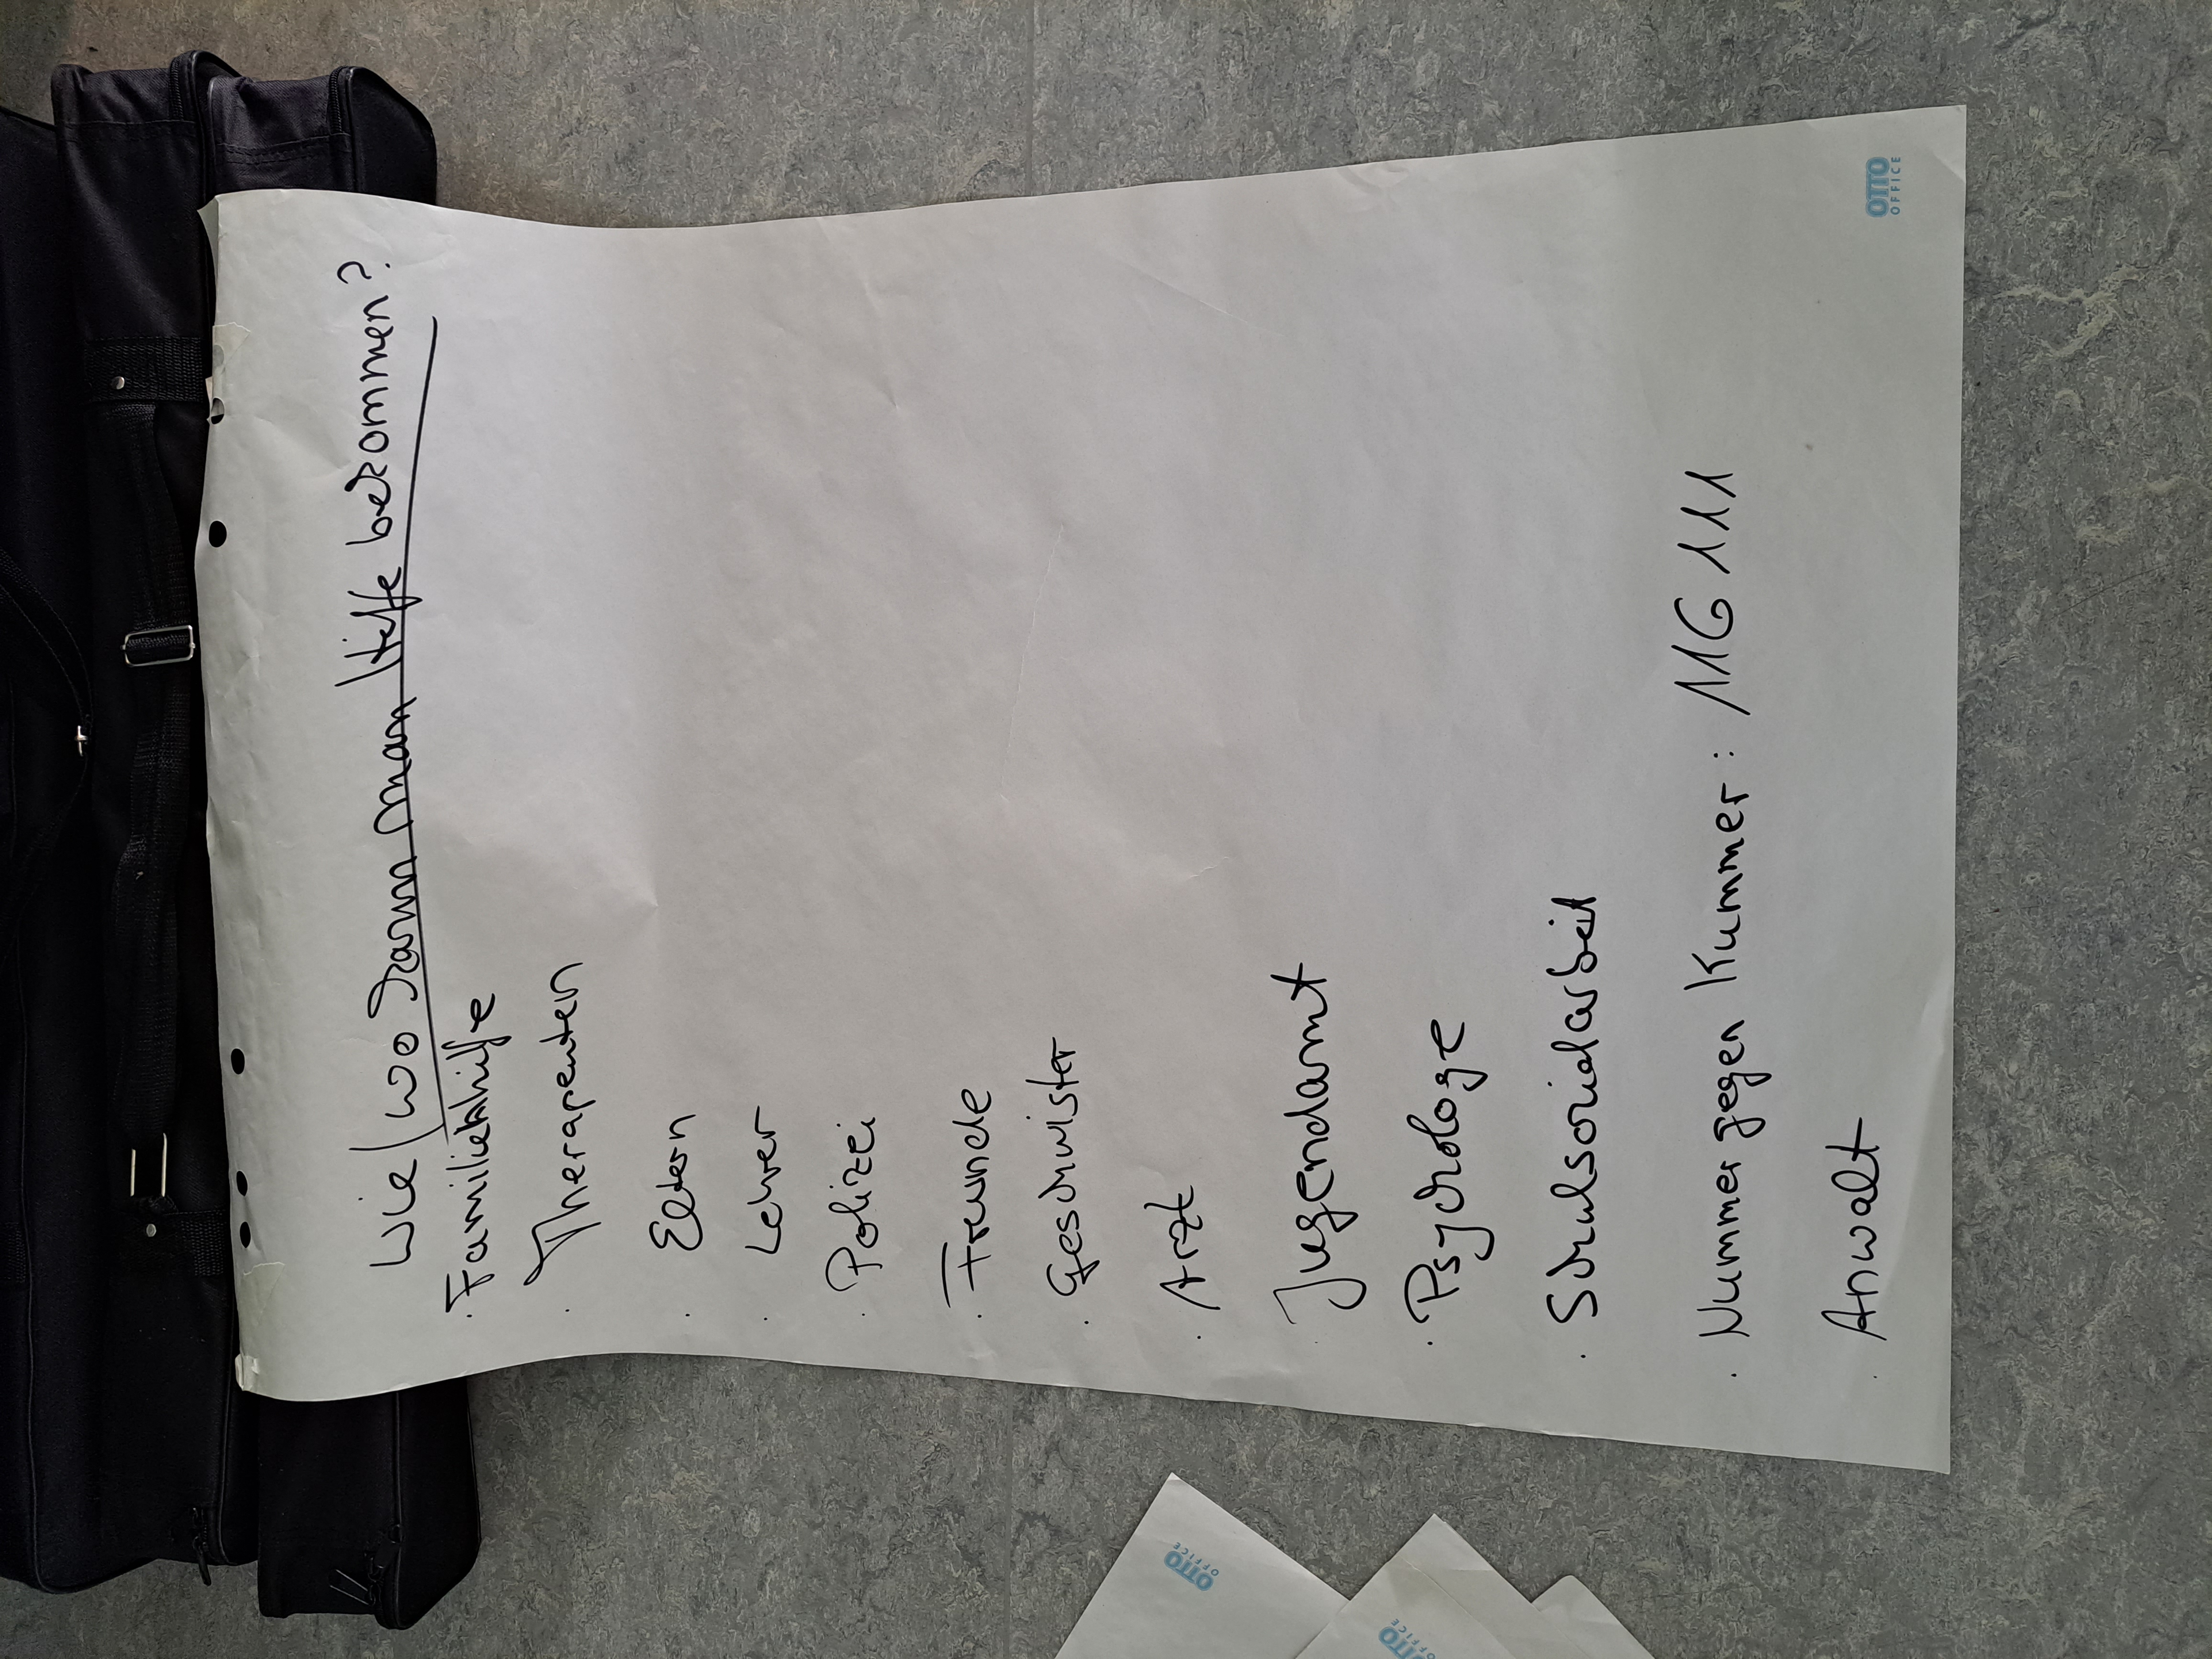 Wie/wo kann man Hilfe bekommen?
· Familienhilfe
· Therapeuten
· Eltern
· Lehrer
· Polizei
· Freunde
· Geschwister
· Arzt
· Jugendamt
· Psychologe
· Schulsozialarbeit
· Nummer gegen Kummer: 116 111
· Anwalt
OTTO
OFFICE
OTTO
OFFICE
OTTO
OFFICE